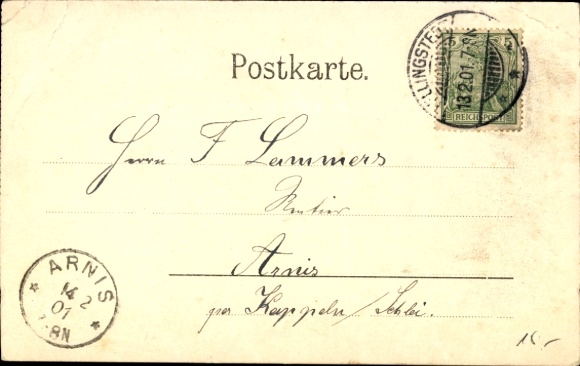 Postkarte.
LLINGSTE
13.2.01.7-8N
5 5
REICHSPOST
Herrn F Lammers
Rentier
Arnis
per Kappeln/Schlei.
ARNIS
14 2
01
8N
15.-